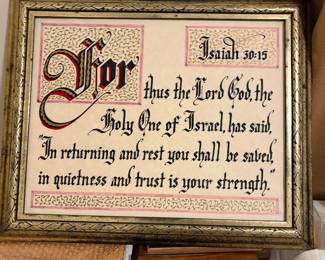 For
Isaiah 30:15
thus the Lord God, the
Holy One of Israel, has said,
"In returning and rest you shall be saved,
in quietness and trust is your strength."